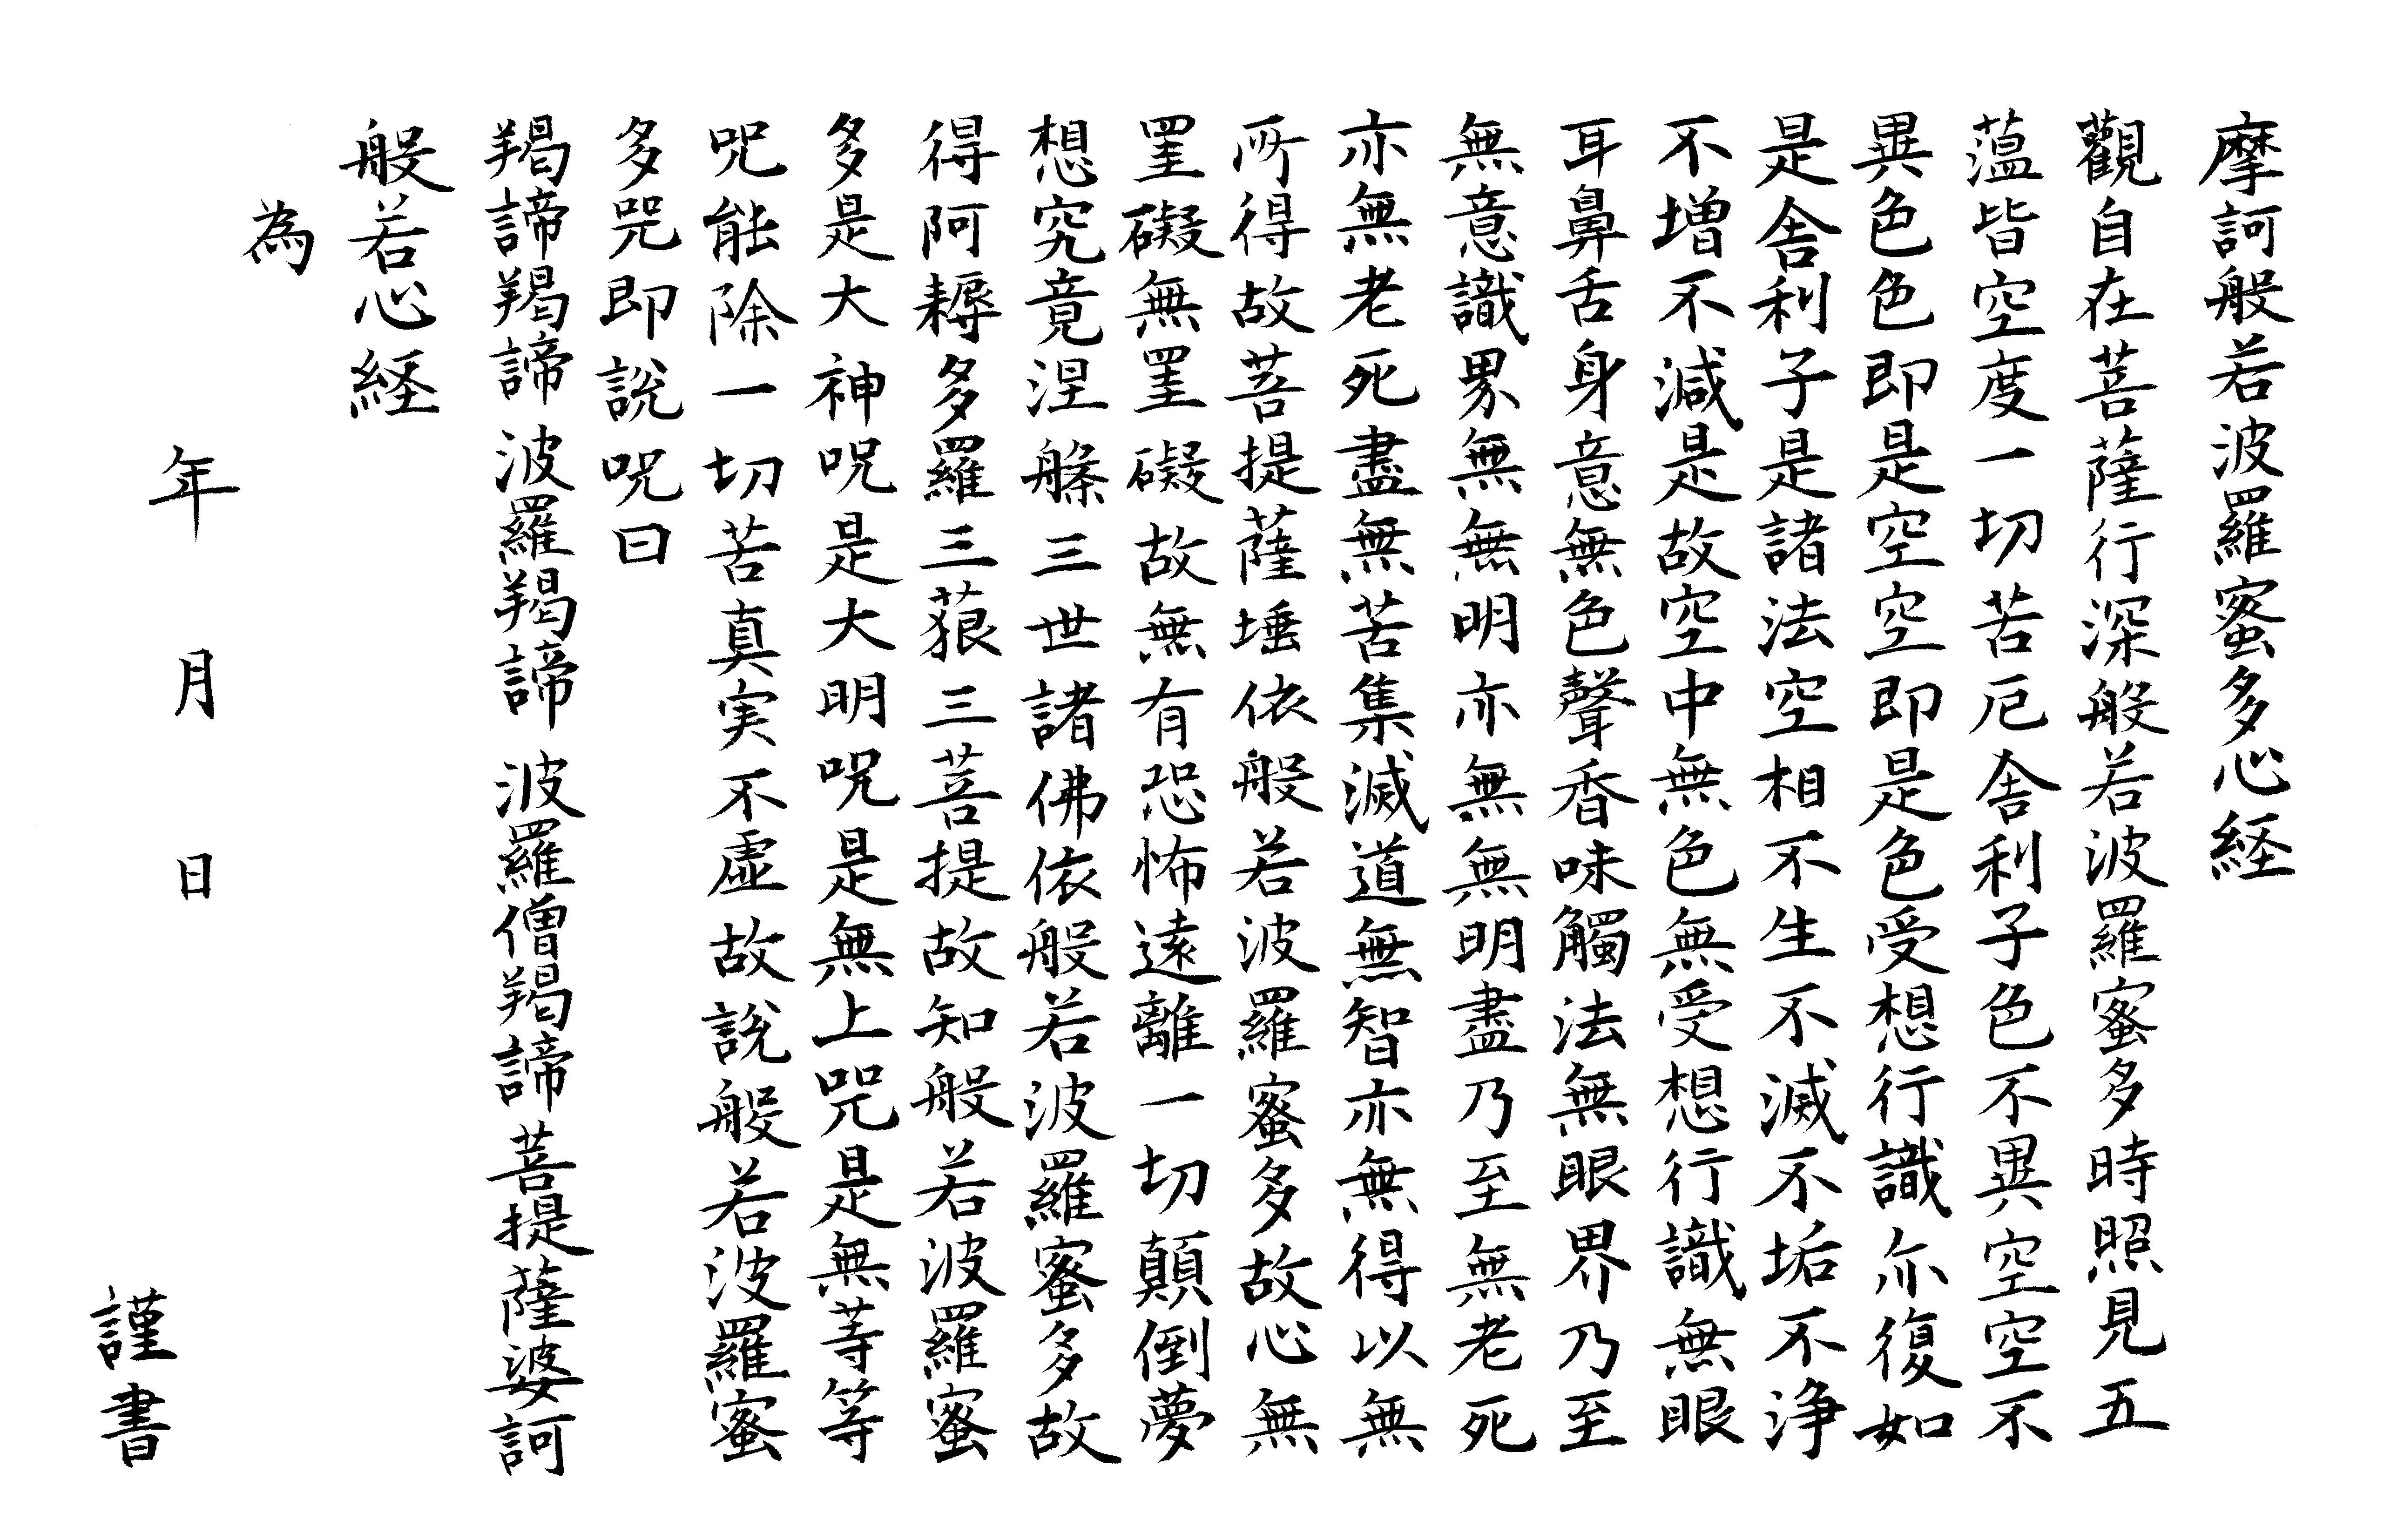 摩訶般若波羅蜜多心経
觀自在菩薩行深般若波羅蜜多時照見五
薀皆空度一切苦厄舎利子色不異空空不
異色色即是空空即是色受想行識亦復如
是舎利子是諸法空相不生不滅不垢不浄
不増不減是故空中無色無受想行識無眼
耳鼻舌身意無色聲香味觸法無眼界乃至
無意識界無無明亦無無明盡乃至無老死
亦無老死盡無苦集滅道無智亦無得以無
所得故菩提薩埵依般若波羅蜜多故心無
罣礙無罣礙故無有恐怖遠離一切顛倒夢
想究竟涅槃三世諸佛依般若波羅蜜多故
得阿耨多羅三藐三菩提故知般若波羅蜜
多是大神呪是大明呪是無上咒是無等等
呪能除一切苦真実不虚故説般若波羅蜜
多咒即説呪曰
羯諦羯諦波羅羯諦波羅僧羯諦菩提薩婆訶
般若心経
為
年月日
謹書